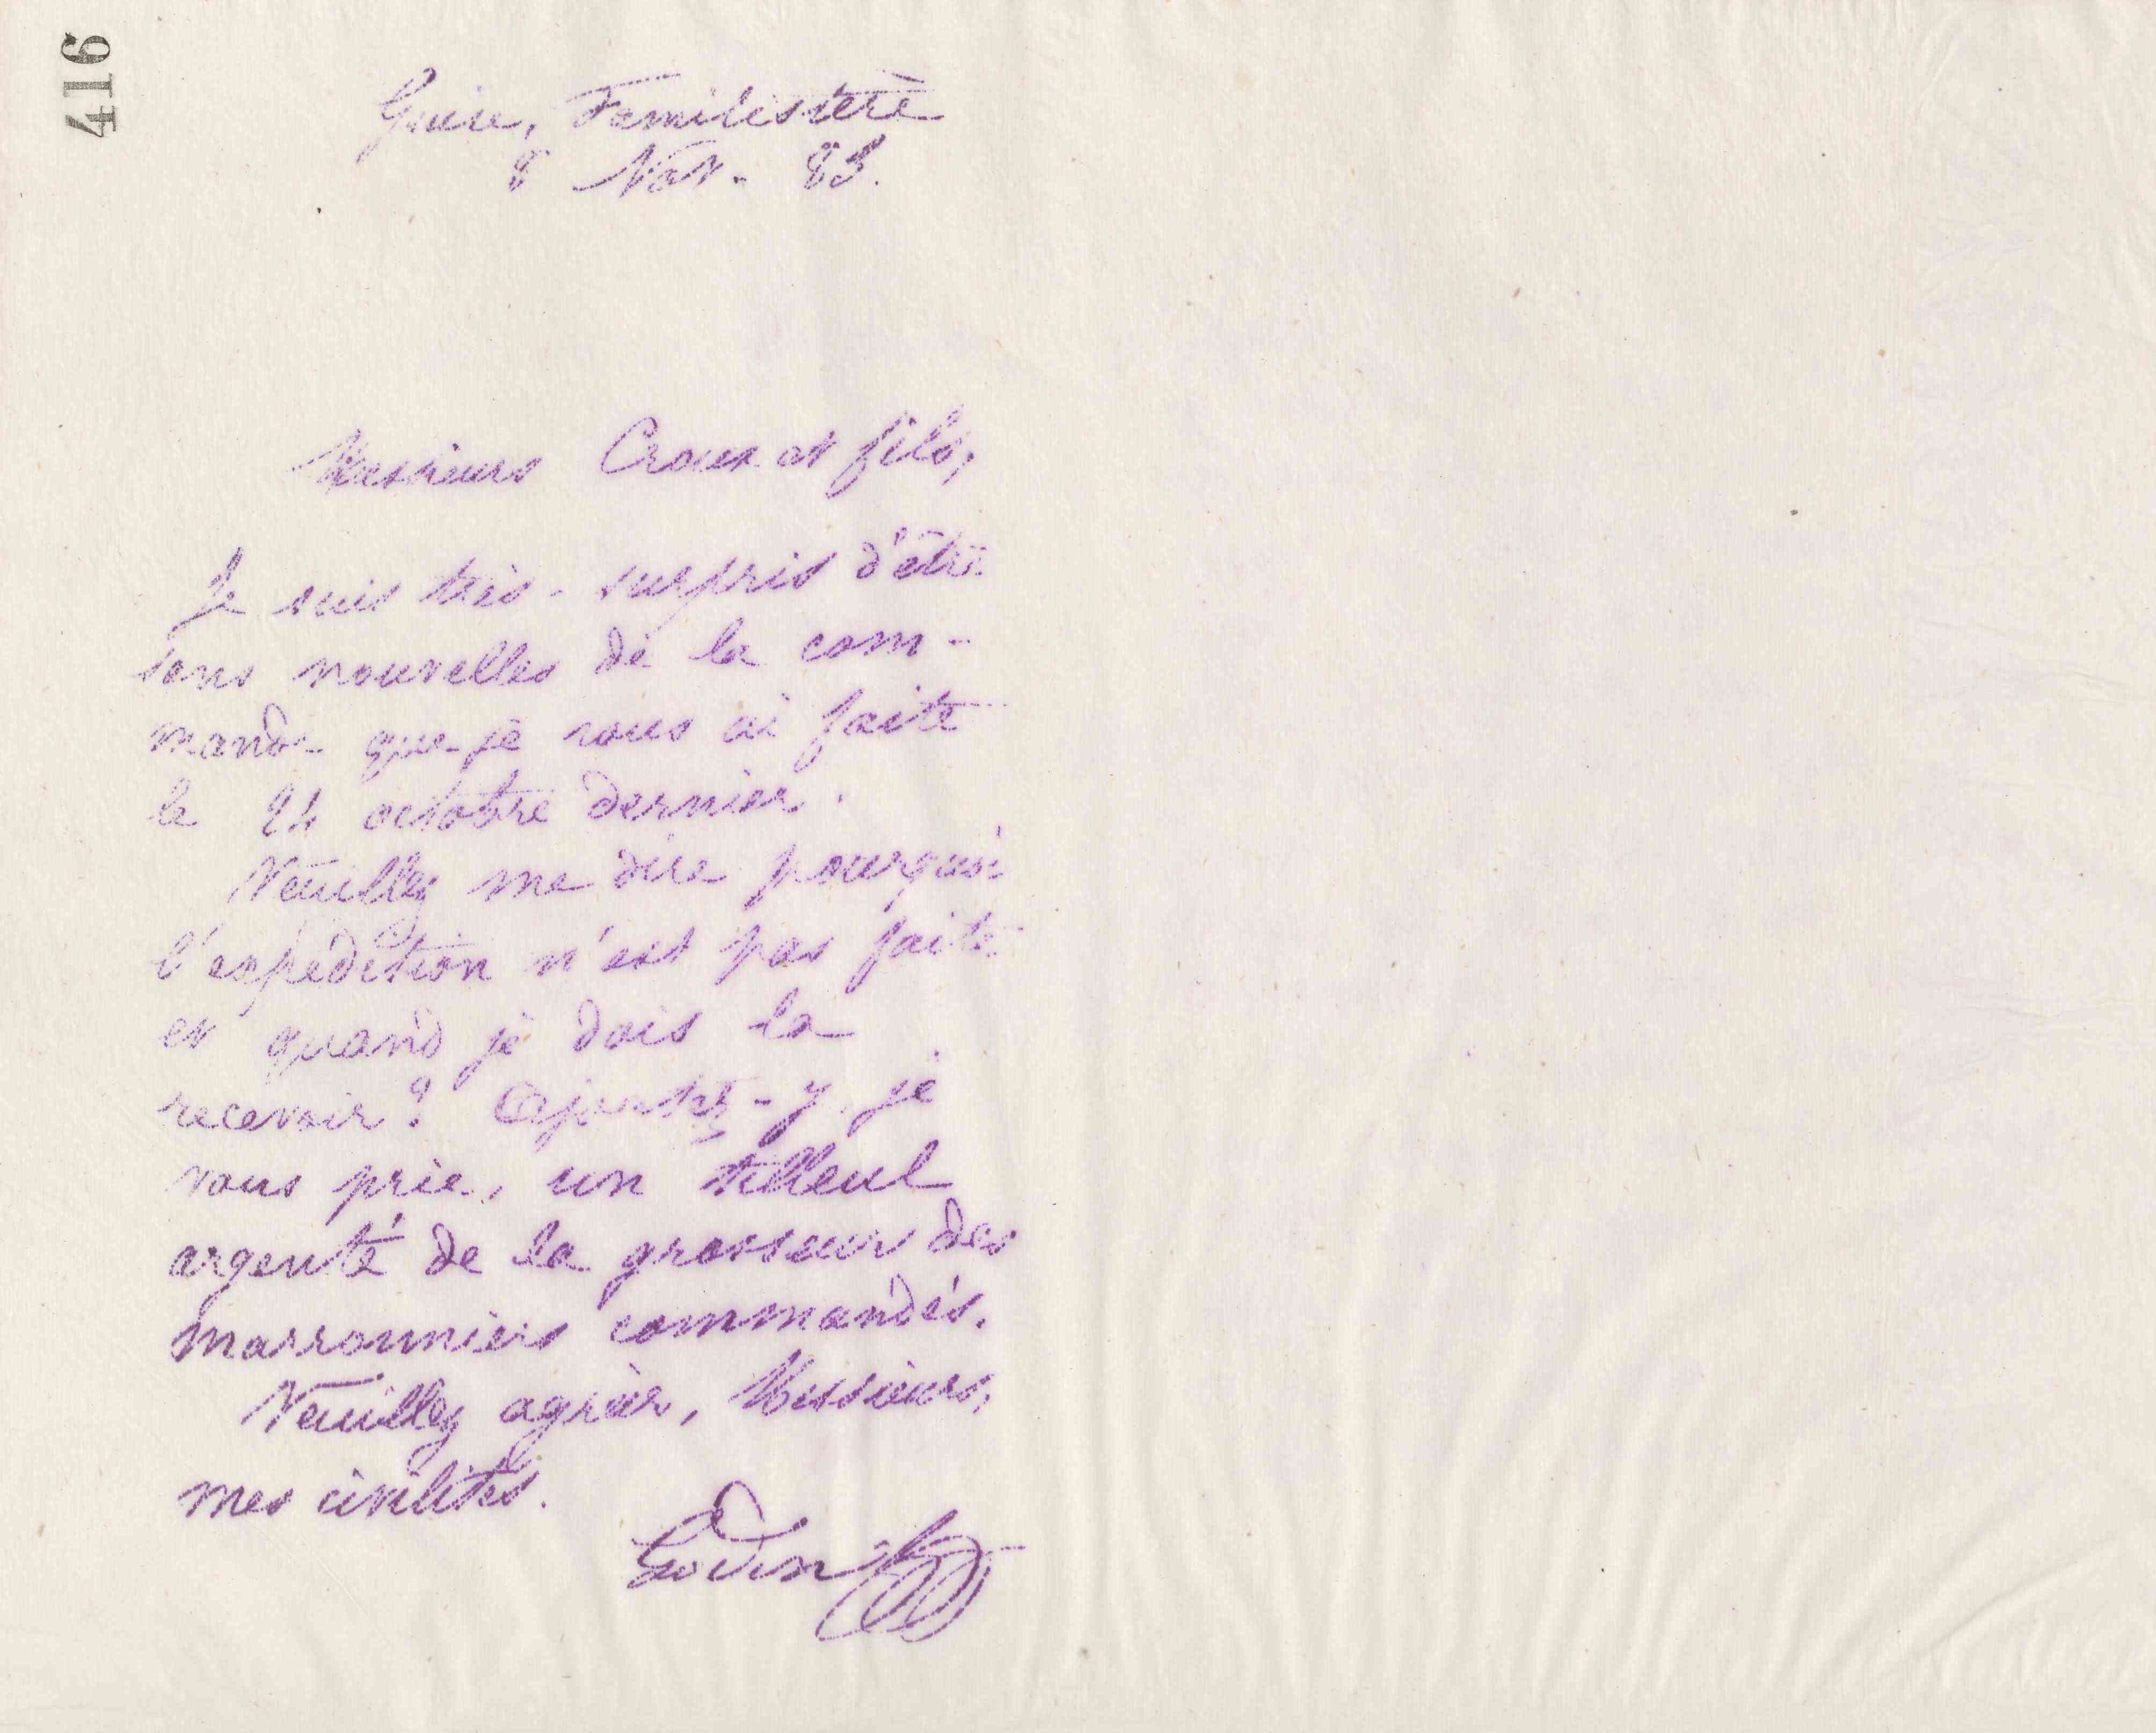 416
Guise, Familistère
8 Nov. 83.
Messieurs Croux et fils,
Je suis très-surpris d'être
sans nouvelles de la com-
mande que je vous ai faite
le 24 octobre dernier.
Veuillez me dire pourquoi
l'expédition n'est pas faite
et quand je dois la
recevoir? Ajoutez-y, je
vous prie, un tilleul
argenté de la grosseur des
marronniers commandés.
Veuillez agréer, Messieurs,
mes civilités.
Godin